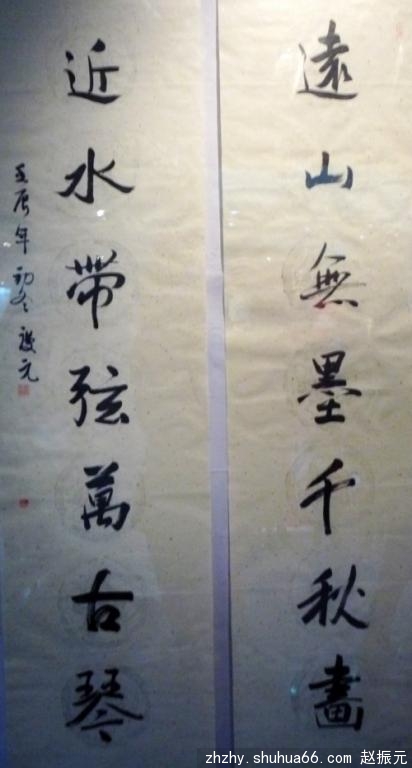 遠山無墨千秋畫
近水帶弦萬古琴
壬辰年初冬振元
zhzhy.shuhua66.com 赵振元